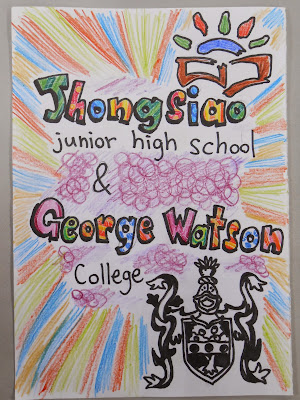 Jhongsiao
junior high school
&
George Watson
College